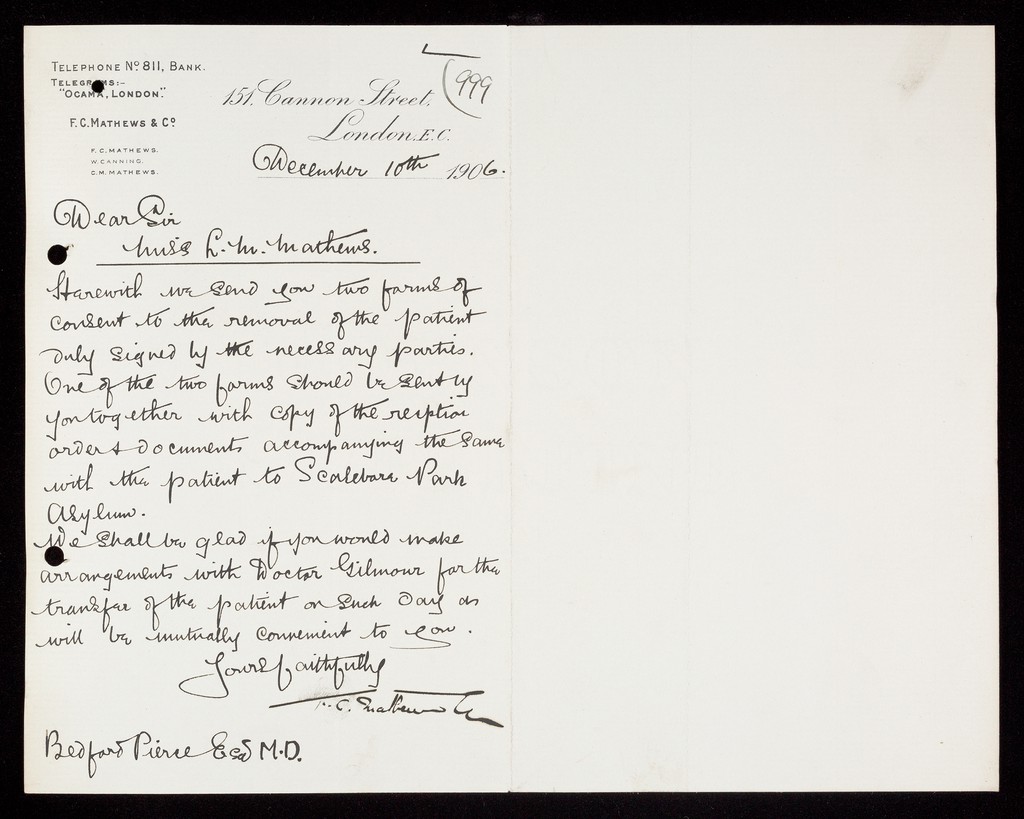 TELEPHONE No. 811, BANK.
TELEGRAMS:-
"OCAMA, LONDON".
F. C. MATHEWS & Co.
F. C. MATHEWS.
W. CANNING.
C. M. MATHEWS.
999
151, Cannon Street,
London, E.C.
December 10th 1906.
Dear Sir
Miss L. M. Mathews.
Herewith we send you two forms of
consent to the removal of the patient
duly signed by the necessary parties.
One of the two forms should be sent by
you together with copy of the reception
order & documents accompanying the same
with the patient to Scalebor Park
Asylum.
We shall be glad if you would make
arrangements with Doctor Gilmour for the
transfer of the patient on such day as
will be mutually convenient to you.
Yours faithfully
F. C. Mathews & Co
Bedford Pierce Esq M.D.